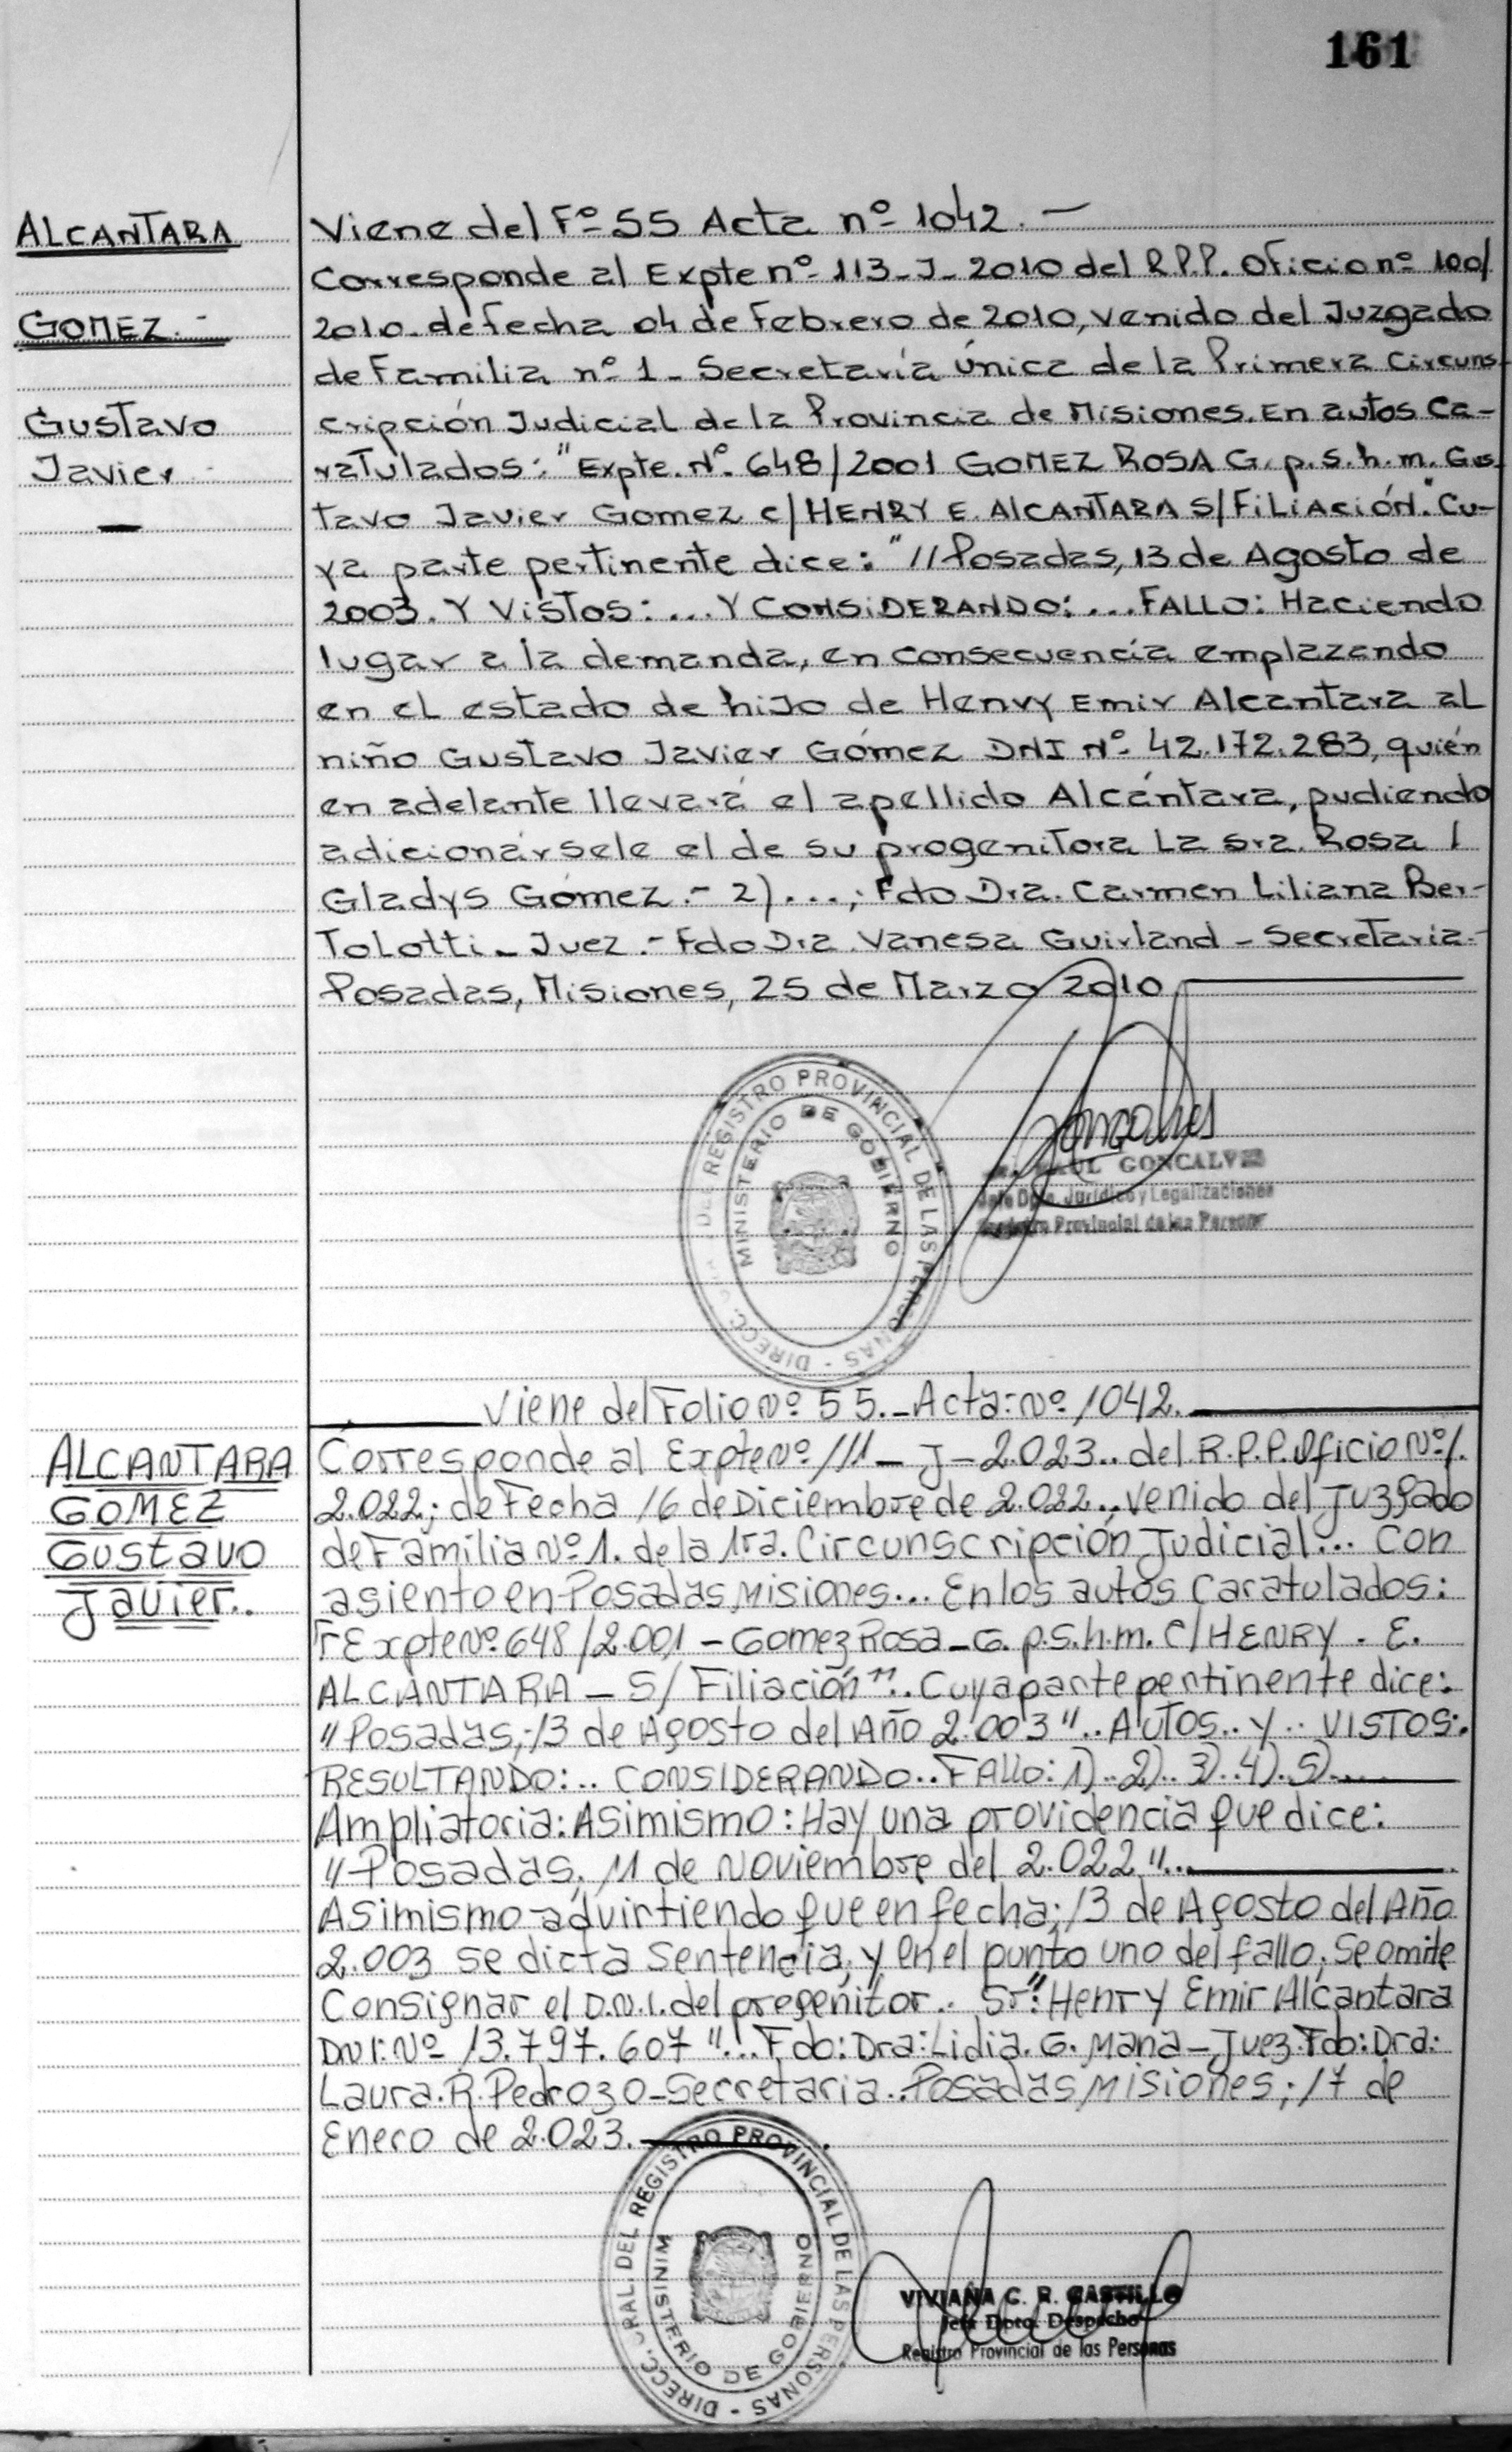 161
ALCANTARA
GOMEZ.-
Gustavo
Javier
Viene del Fº 55 Acta nº 1042.-
Corresponde al Expte nº 113-J-2010 del R.P.P. Oficio nº 100/
2010 de fecha 04 de Febrero de 2010, venido del Juzgado
de Familia nº 1 - Secretaría Única de la Primera Circuns-
cripción Judicial de la Provincia de Misiones. En autos Ca-
ratulados: "Expte. Nº 648/2001 GOMEZ ROSA G. p.s.h.m. Gus-
tavo Javier Gomez c/ HENRY E. ALCANTARA S/ FiLiAción." Cu-
ya parte pertinente dice: "//Posadas, 13 de Agosto de
2003. Y VISTOS: ... Y CONSiDERANDO: ... FALLO: Haciendo
lugar a la demanda, en consecuencia emplazando
en el estado de hijo de Henry Emir Alcantara al
niño Gustavo Javier Gómez DNI Nº 42.172.283, quién
en adelante llevará el apellido Alcántara, pudiendo
adicionársele el de su progenitora La sra. Rosa /
Gladys Gómez.- 2) ...; Fdo Dra. Carmen Liliana Ber-
Tolotti - Juez.- Fdo Dra. Vanesa Guirland - Secretaria.-
Posadas, Misiones, 25 de Marzo 2010
DIRECC. DEL REGISTRO PROVINCIAL DE LAS PERSONAS
MINISTERIO DE GOBIERNO
RAUL GONCALVES
Jefe Dpto. Jurídico y Legalizaciones
Registro Provincial de las Personas
Viene del Folio Nº 55.- Acta: Nº 1042.
ALCANTARA
GOMEZ
Gustavo
Javier..
Corresponde al Expte Nº 111-J-2.023.. del R.P.P. Oficio Nº/.
2.022; de Fecha 16 de Diciembre de 2.022.. venido del Juzgado
de Familia Nº 1. de la 1ra. Circunscripción Judicial... Con
asiento en Posadas Misiones... En los autos Caratulados:
"Expte Nº 648/2.001 - Gomez Rosa - G. p.s.h.m. C/ HENRY. E.
ALCANTARA - S/ Filiación".. Cuya parte pertinente dice:
"Posadas; 13 de Agosto del Año 2.003".. AUTOS.. Y.. VISTOS:.
RESULTANDO:.. CONSIDERANDO.. FALLO: 1).. 2).. 3).. 4).. 5)....
Ampliatoria: Asimismo: Hay una providencia que dice:
"Posadas; 11 de Noviembre del 2.022"...
Asimismo advirtiendo que en fecha; 13 de Agosto del Año
2.003 se dicta Sentencia; y en el punto uno del fallo; Se omite
Consignar el D.N.I. del progenitor.. "Sr: Henry Emir Alcantara
DNI: Nº 13.797.607"... Fdo: Dra: Lidia. G. Mana - Juez. Fdo: Dra:
Laura. R. Pedrozo - Secretaria.. Posadas Misiones; 17 de
Enero de 2.023.
DIRECC. GRAL. DEL REGISTRO PROVINCIAL DE LAS PERSONAS
MINISTERIO DE GOBIERNO
VIVIANA C. R. CASTILLO
Jefa Dpto. Despacho
Registro Provincial de las Personas